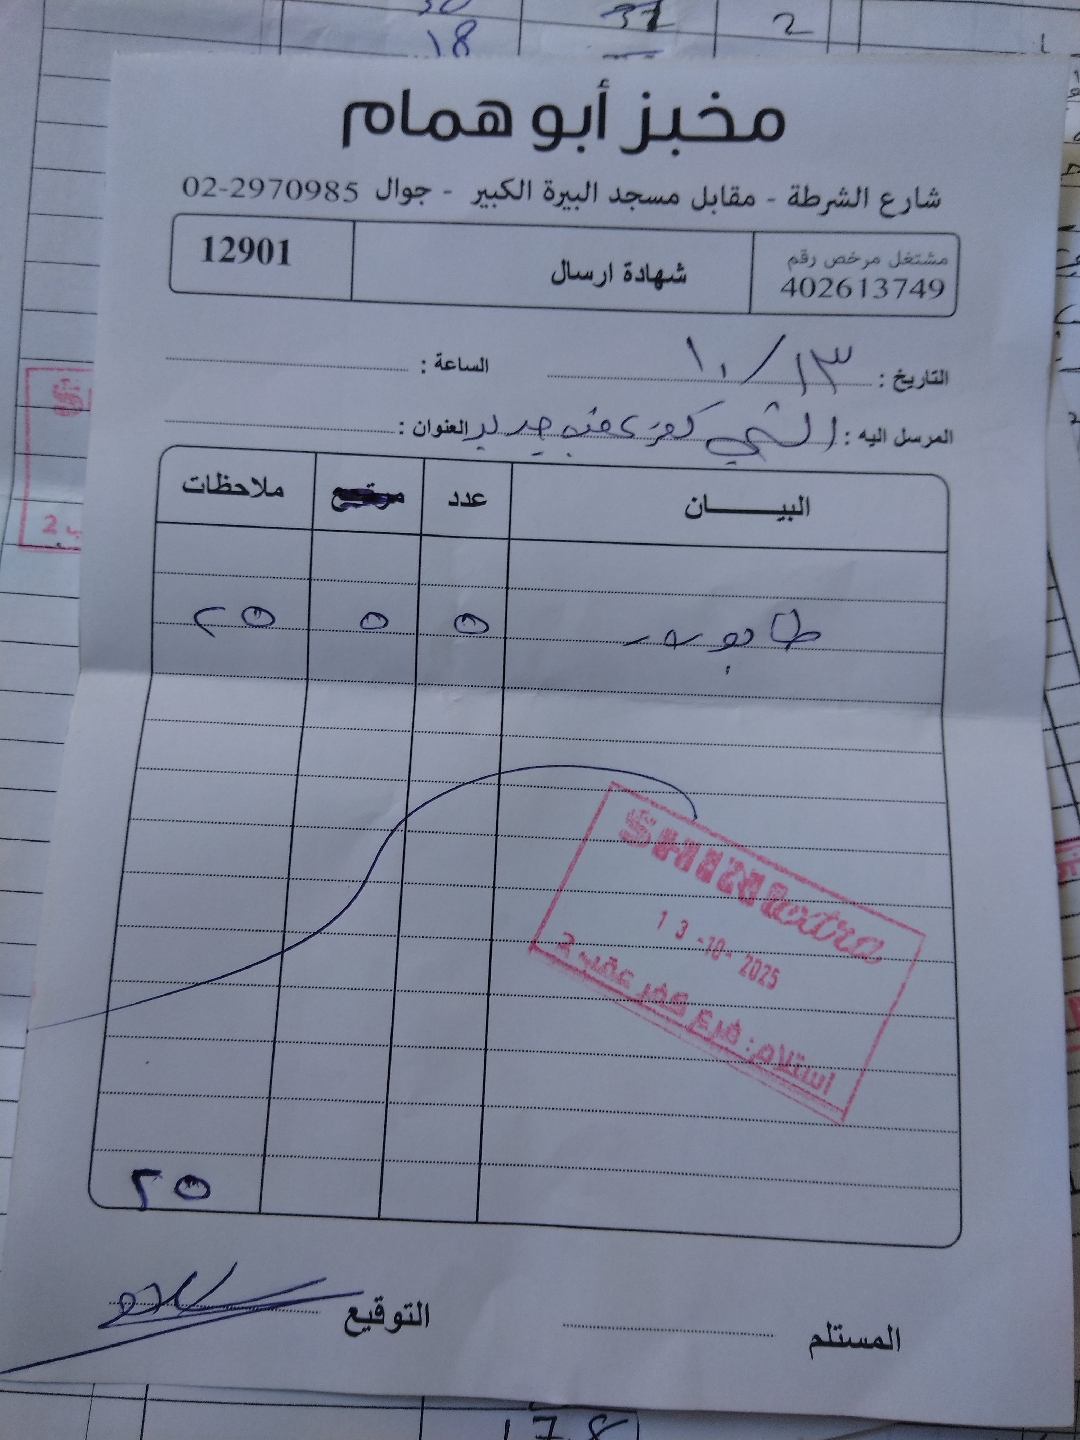 37
2
18
مخبز أبو همام
شارع الشرطة - مقابل مسجد البيرة الكبير - جوال 02-2970985
مشتغل مرخص رقم
402613749
شهادة ارسال
12901
التاريخ : ١٣/١٠ الساعة :
المرسل اليه : الشني كفر عقب جديد العنوان :
البيـــان عدد مرتجع ملاحظات
طابون ٥ ٥ ٢٥
SHINI extra
13-10-2025
استلام: فرع كفر عقب 2
٢٥
المستلم التوقيع
178